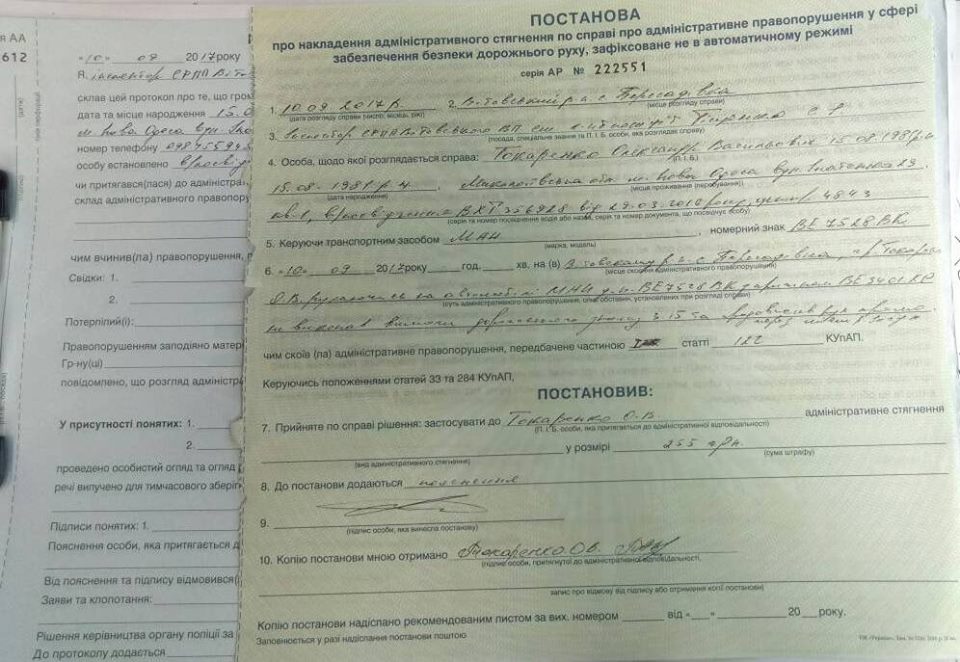 ія АА
612
«10» 09 2017року
Я, інспектор СРПП Віто
склав цей протокол про те, що гром
дата та місце народження 15.0
м Нова Одеса вул
номер телефону
особу встановлено
чи притягався(лася) до адміністра
склад адміністративного правопору
чим вчинив(ла) правопорушення, п
Свідки: 1.
2.
Потерпілий(і):
Правопорушенням заподіяно матер
Гр-ну(ці)
повідомлено, що розгляд адміністра
У присутності понятих: 1.
2.
проведено особистий огляд та огляд
речі вилучено для тимчасового зберіг
Підписи понятих: 1.
Пояснення особи, яка притягається д
Від пояснення та підпису відмовився(
Заяви та клопотання:
Рішення керівництва органу поліції за
До протоколу додається
ПОСТАНОВА
про накладення адміністративного стягнення по справі про адміністративне правопорушення у сфері
забезпечення безпеки дорожнього руху, зафіксоване не в автоматичному режимі
серія АР № 222551
1. 10.09.2017р. 2. Вітовський р-н с.
(дата розгляду справи (число, місяць, рік) (місце розгляду справи)
3. Інспектор СРПП Вітовського ВП
(посада, спеціальне звання та П. І. Б. особи, яка розглядає справу)
4. Особа, щодо якої розглядається справа: Токаренко Олександр Васильович 15.08.1981р.н
(П. І. Б.)
15.08.1981р.н, Миколаївська обл. м. Нова Одеса вул. 23
(дата народження) (місце проживання (перебування))
кв. 1, в/посвідчення ВХТ 356928 від 29.03.2010 року, 4843
(серія та номер посвідчення водія або назва, серія та номер документа, що посвідчує особу)
5. Керуючи транспортним засобом МАН, номерний знак ВЕ7528ВК
(марка, модель)
6. «10» 09 2017року год. хв. на (в) р. Токарен
(місце скоєння адміністративного правопорушення)
О.В. рухаючись на автомобілі МАН д.н. ВЕ7528ВК з ВЕ3401
(суть адміністративного правопорушення, опис обставин, установлених при розгляді справи)
не виконав вимоги дорожнього знаку 3.15 та
чим скоїв (ла) адміністративне правопорушення, передбачене частиною статті 122 КУпАП.
Керуючись положеннями статей 33 та 284 КУпАП,
ПОСТАНОВИВ:
7. Прийняте по справі рішення: застосувати до Токаренко О.В. адміністративне стягнення
(П. І. Б. особи, яка притягається до адміністративної відповідальності)
у розмірі 255 грн.
(вид адміністративного стягнення) (сума штрафу)
8. До постанови додаються пояснення
9.
(підпис особи, яка винесла постанову)
10. Копію постанови мною отримано Токаренко О.В.
(підпис особи, притягнутої до адміністративної відповідальності,
запис про відмову від підпису або отримання копії постанови)
Копію постанови надіслано рекомендованим листом за вих. номером від « » 20 року.
Заповнюється у разі надіслання постанови поштою